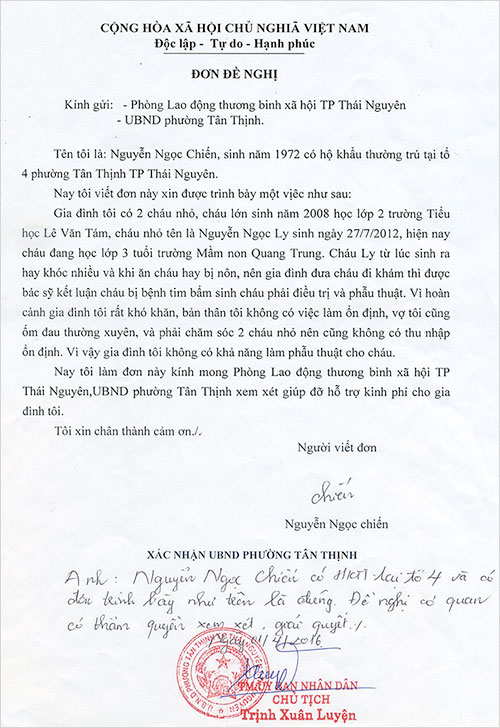 CỘNG HÒA XÃ HỘI CHỦ NGHIÃ VIỆT NAM
Độc lập - Tự do - Hạnh phúc
ĐƠN ĐỀ NGHỊ
Kính gửi: - Phòng Lao động thương binh xã hội TP Thái Nguyên
- UBND phường Tân Thịnh.
Tên tôi là: Nguyễn Ngọc Chiến, sinh năm 1972 có hộ khẩu thường trú tại tổ
4 phường Tân Thịnh TP Thái Nguyên.
Nay tôi viết đơn này xin được trình bày một việc như sau:
Gia đình tôi có 2 cháu nhỏ, cháu lớn sinh năm 2008 học lớp 2 trường Tiểu
học Lê Văn Tám, cháu nhỏ tên là Nguyễn Ngọc Ly sinh ngày 27/7/2012, hiện nay
cháu đang học lớp 3 tuổi trường Mầm non Quang Trung. Cháu Ly từ lúc sinh ra
hay khóc nhiều và khi ăn cháu hay bị nôn, nên gia đình đưa cháu đi khám thì được
bác sỹ kết luận cháu bị bệnh tim bẩm sinh cháu phải điều trị và phẫu thuật. Vì hoàn
cảnh gia đình tôi rất khó khăn, bản thân tôi không có việc làm ổn định, vợ tôi cũng
ốm đau thường xuyên, và phải chăm sóc 2 cháu nhỏ nên cũng không có thu nhập
ổn định. Vì vậy gia đình tôi không có khả năng làm phẫu thuật cho cháu.
Nay tôi làm đơn này kính mong Phòng Lao động thương binh xã hội TP
Thái Nguyên,UBND phường Tân Thịnh xem xét giúp đỡ hỗ trợ kinh phí cho gia
đình tôi.
Tôi xin chân thành cảm ơn./.
Người viết đơn
chiến
Nguyễn Ngọc chiến
XÁC NHẬN UBND PHƯỜNG TÂN THỊNH
Anh: Nguyễn Ngọc Chiến có HKTT tại tổ 4 và có
đơn trình bày như trên là đúng. Đề nghị cơ quan
có thẩm quyền xem xét, giải quyết./.
Ngày 01/4/2016
TM.UỶ BAN NHÂN DÂN
CHỦ TỊCH
Trịnh Xuân Luyện